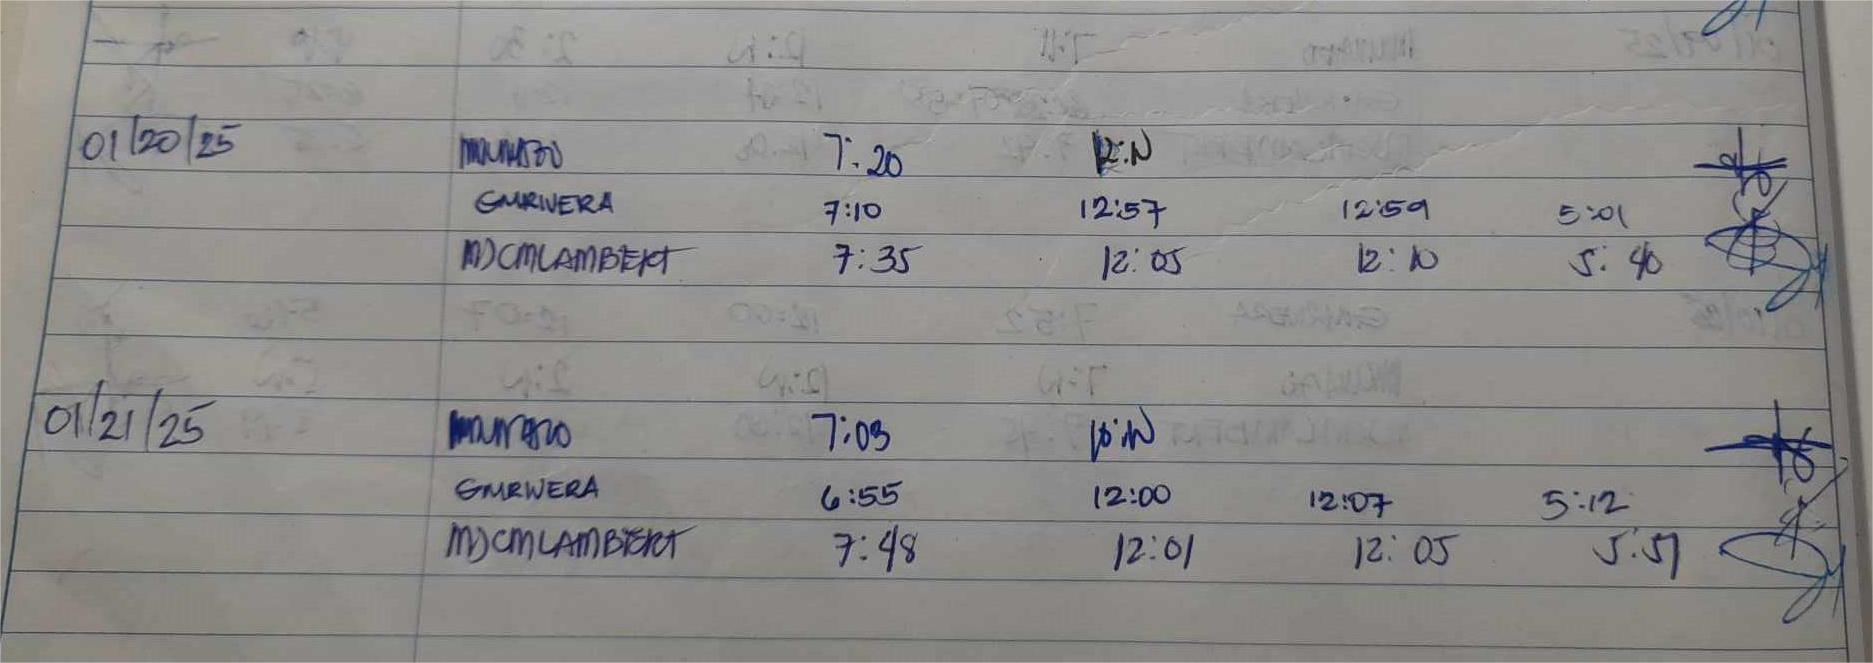 01/20/25 7:20 12:N
GMRIVERA 7:10 12:57 12:59 5:01
MJCMLAMBERT 7:35 12:05 12:10 5:40
01/21/25 7:03
GMRIVERA 6:55 12:00 12:07 5:12
MJCMLAMBERT 7:48 12:01 12:05 5:51